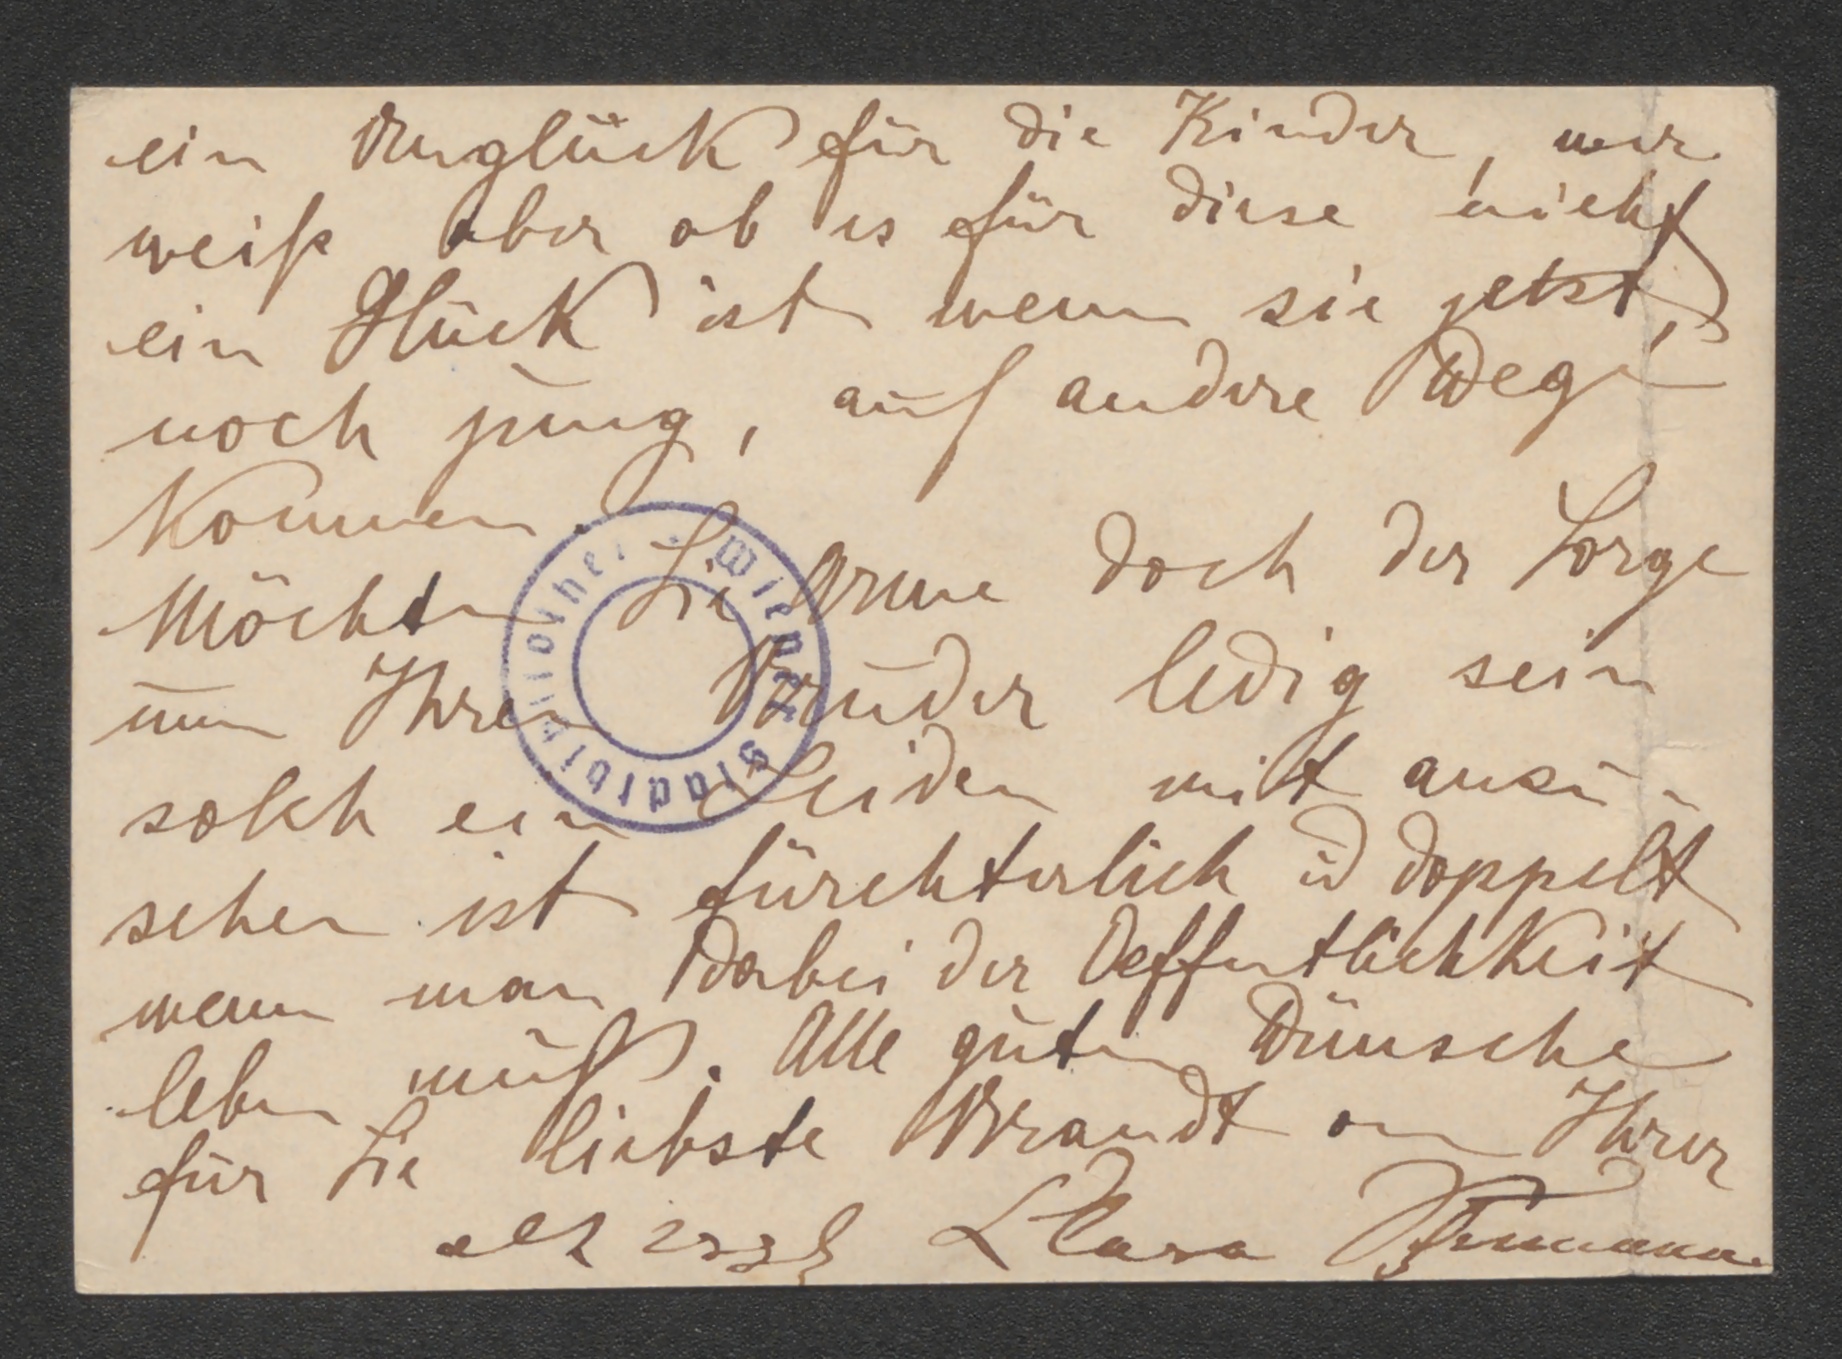 ein Unglück für die Kinder, wer
weiß aber ob es für diese nicht
ein Glück ist wenn sie jetzt,
noch jung, auf andere Wege
kommen.
Möchten Sie arme doch der Sorge
um Ihren Bruder ledig sein
solch ein Leiden mit anzu-
sehen ist fürchterlich ud doppelt
wenn man dabei der Oeffentlichkeit
leben muß. Alle guten Wünsche
für Sie liebste Brandt von Ihrer
Clara
Wiener Stadtbibliothek